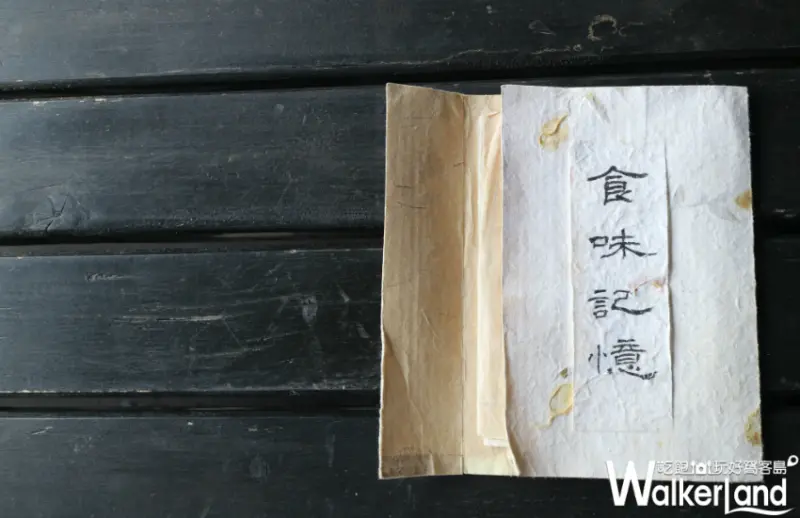 食味記憶
吃喝玩樂好窩客島
WalkerLand